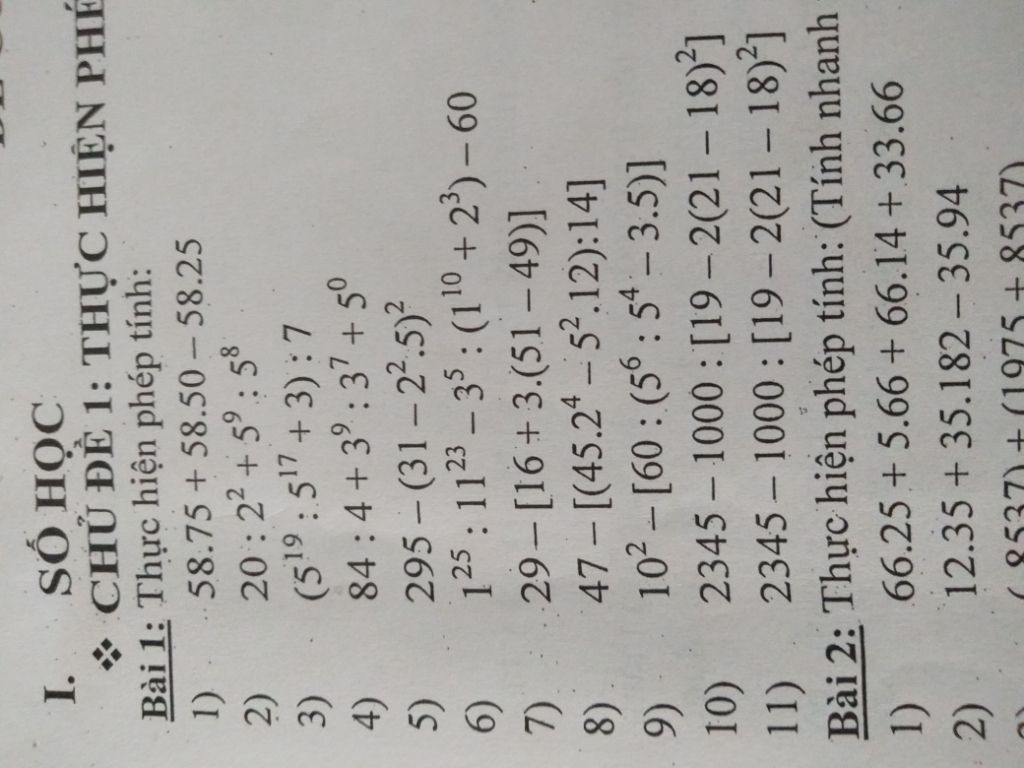 I. SỐ HỌC
❖ CHỦ ĐỀ 1: THỰC HIỆN
Bài 1: Thực hiện phép tính:
1) 58.75 + 58.50 – 58.25
2) 20 : 2² + 5⁹ : 5⁸
3) (5¹⁹ : 5¹⁷ + 3) : 7
4) 84 : 4 + 3⁹ : 3⁷ + 5⁰
5) 295 – (31 – 2².5)²
6) 1²⁵ : 11²³ – 3⁵ : (1¹⁰ + 2³) – 60
7) 29 – [16 + 3.(51 – 49)]
8) 47 – [(45.2⁴ – 5².12):14]
9) 10² – [60 : (5⁶ : 5⁴ – 3.5)]
10) 2345 – 1000 : [19 – 2(21 – 18)²]
11) 2345 – 1000 : [19 – 2(21 – 18)²]
Bài 2: Thực hiện phép tính: (Tính nhanh
1) 66.25 + 5.66 + 66.14 + 33.66
2) 12.35 + 35.182 – 35.94
(-8537) + (1975 + 8537)